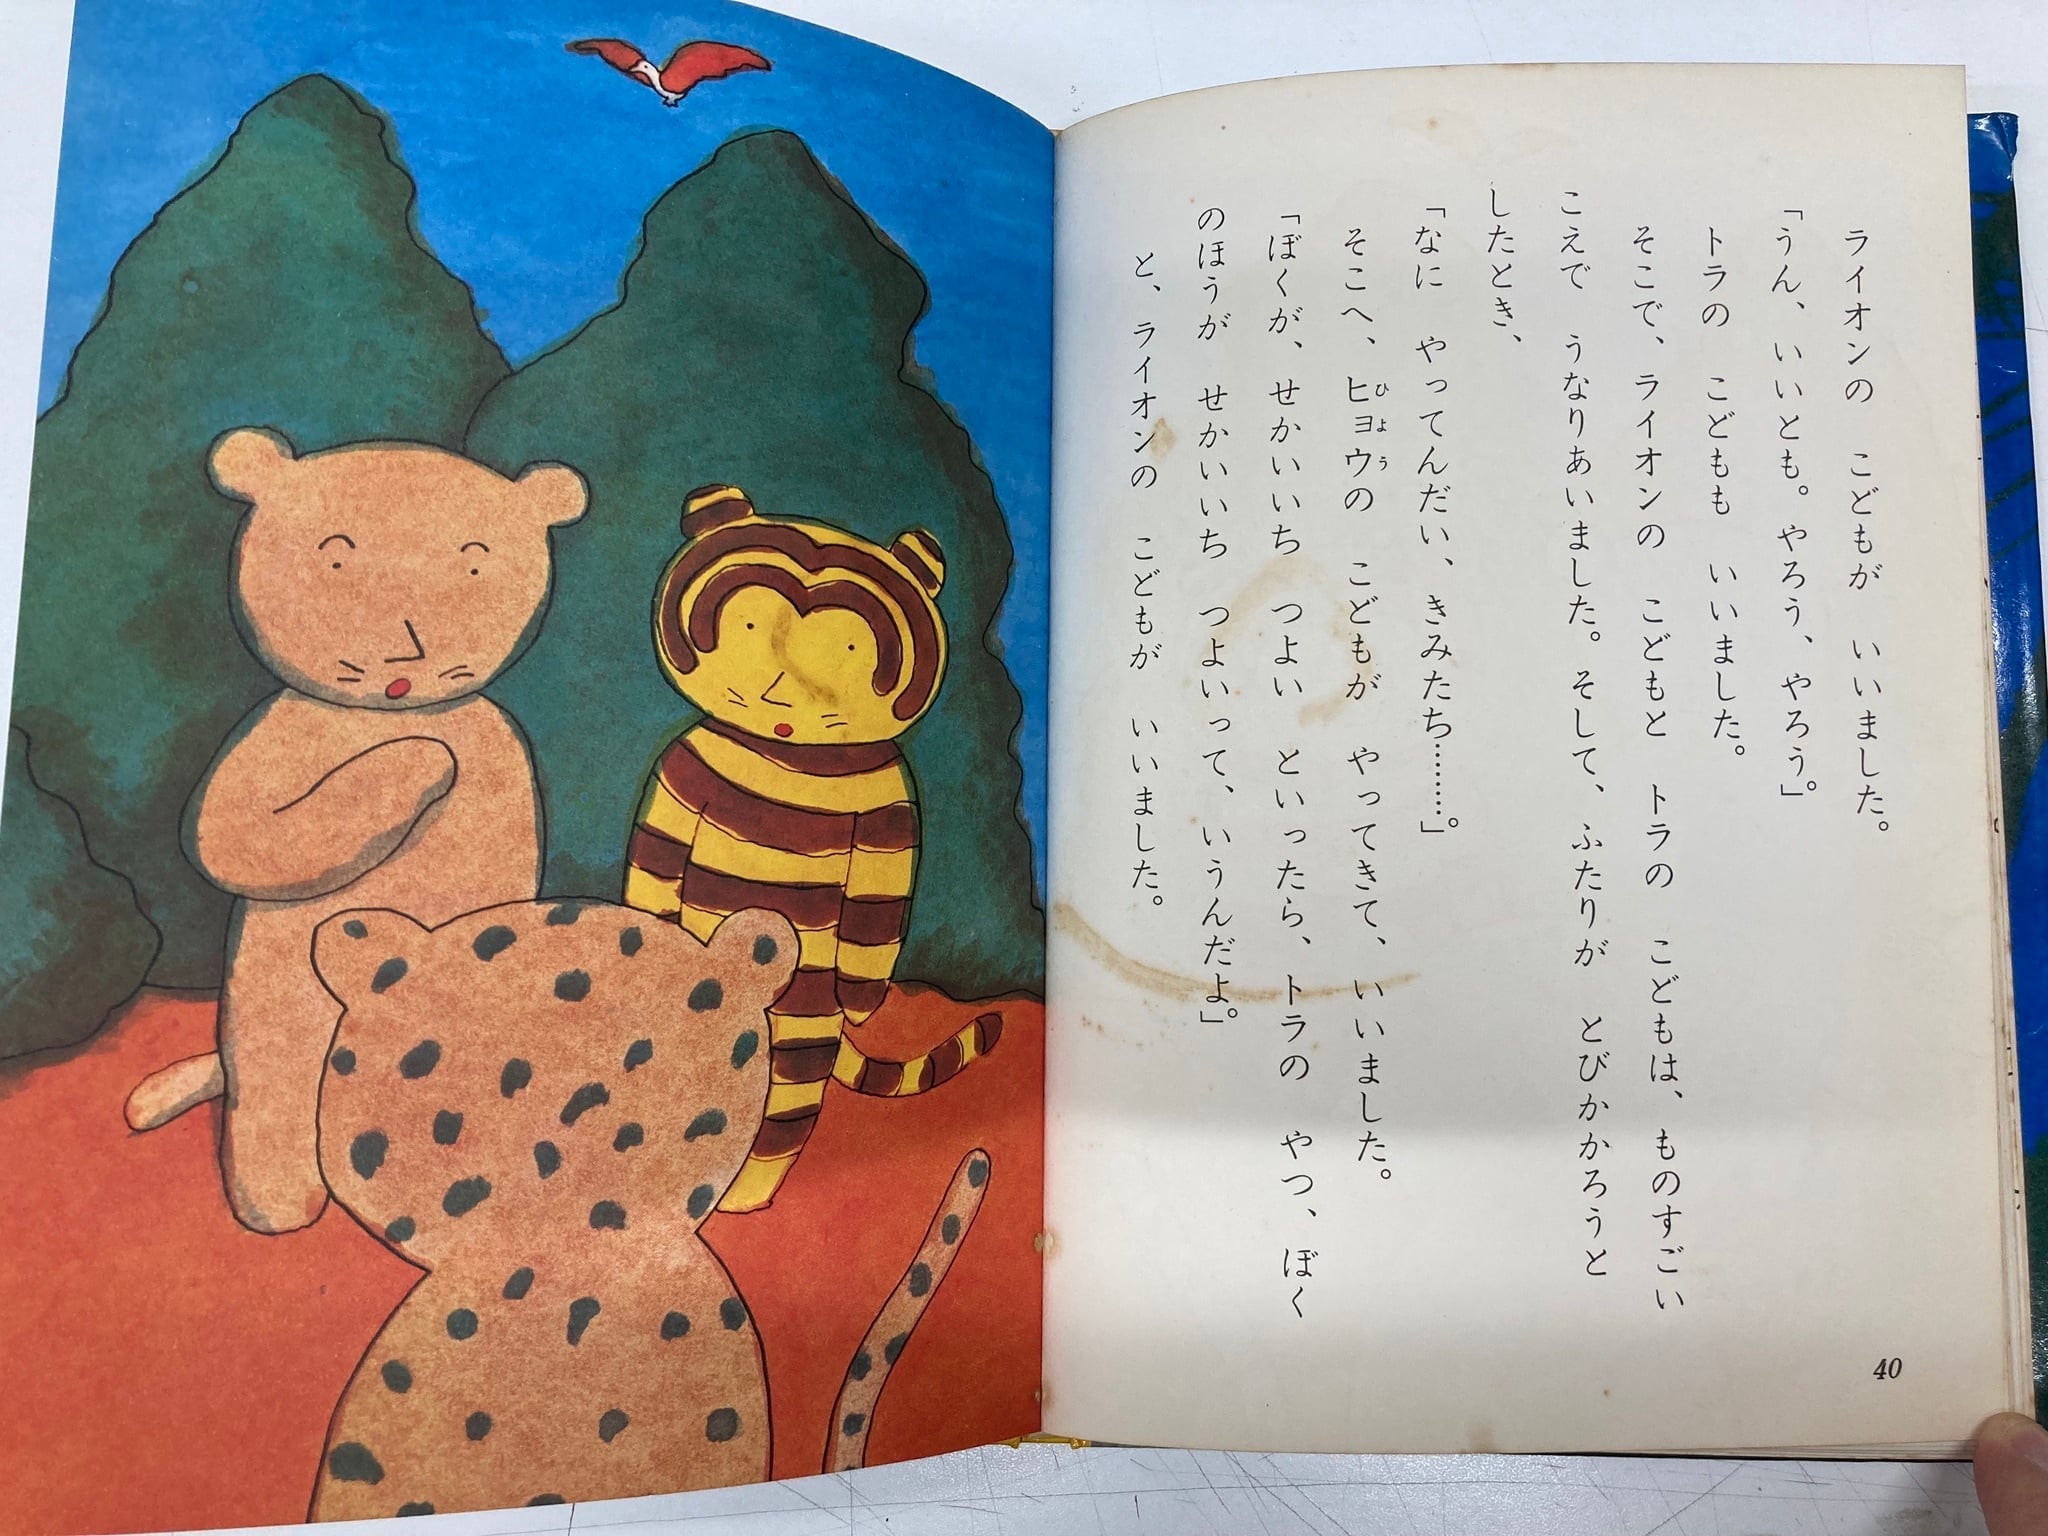 ライオンの　こどもが　いいました。
「うん、いいとも。やろう、やろう。」
トラの　こどもも　いいました。
そこで、ライオンの　こどもと　トラの　こどもは、ものすごい
こえで　うなりあいました。そして、ふたりが　とびかかろうと
したとき、
「なに　やってんだい、きみたち………。」
そこへ、ヒョウの　こどもが　やってきて、いいました。
ひょう
「ぼくが、せかいいち　つよい　といったら、トラの　やつ、ぼく
のほうが　せかいいち　つよいって、いうんだよ。」
と、ライオンの　こどもが　いいました。
40